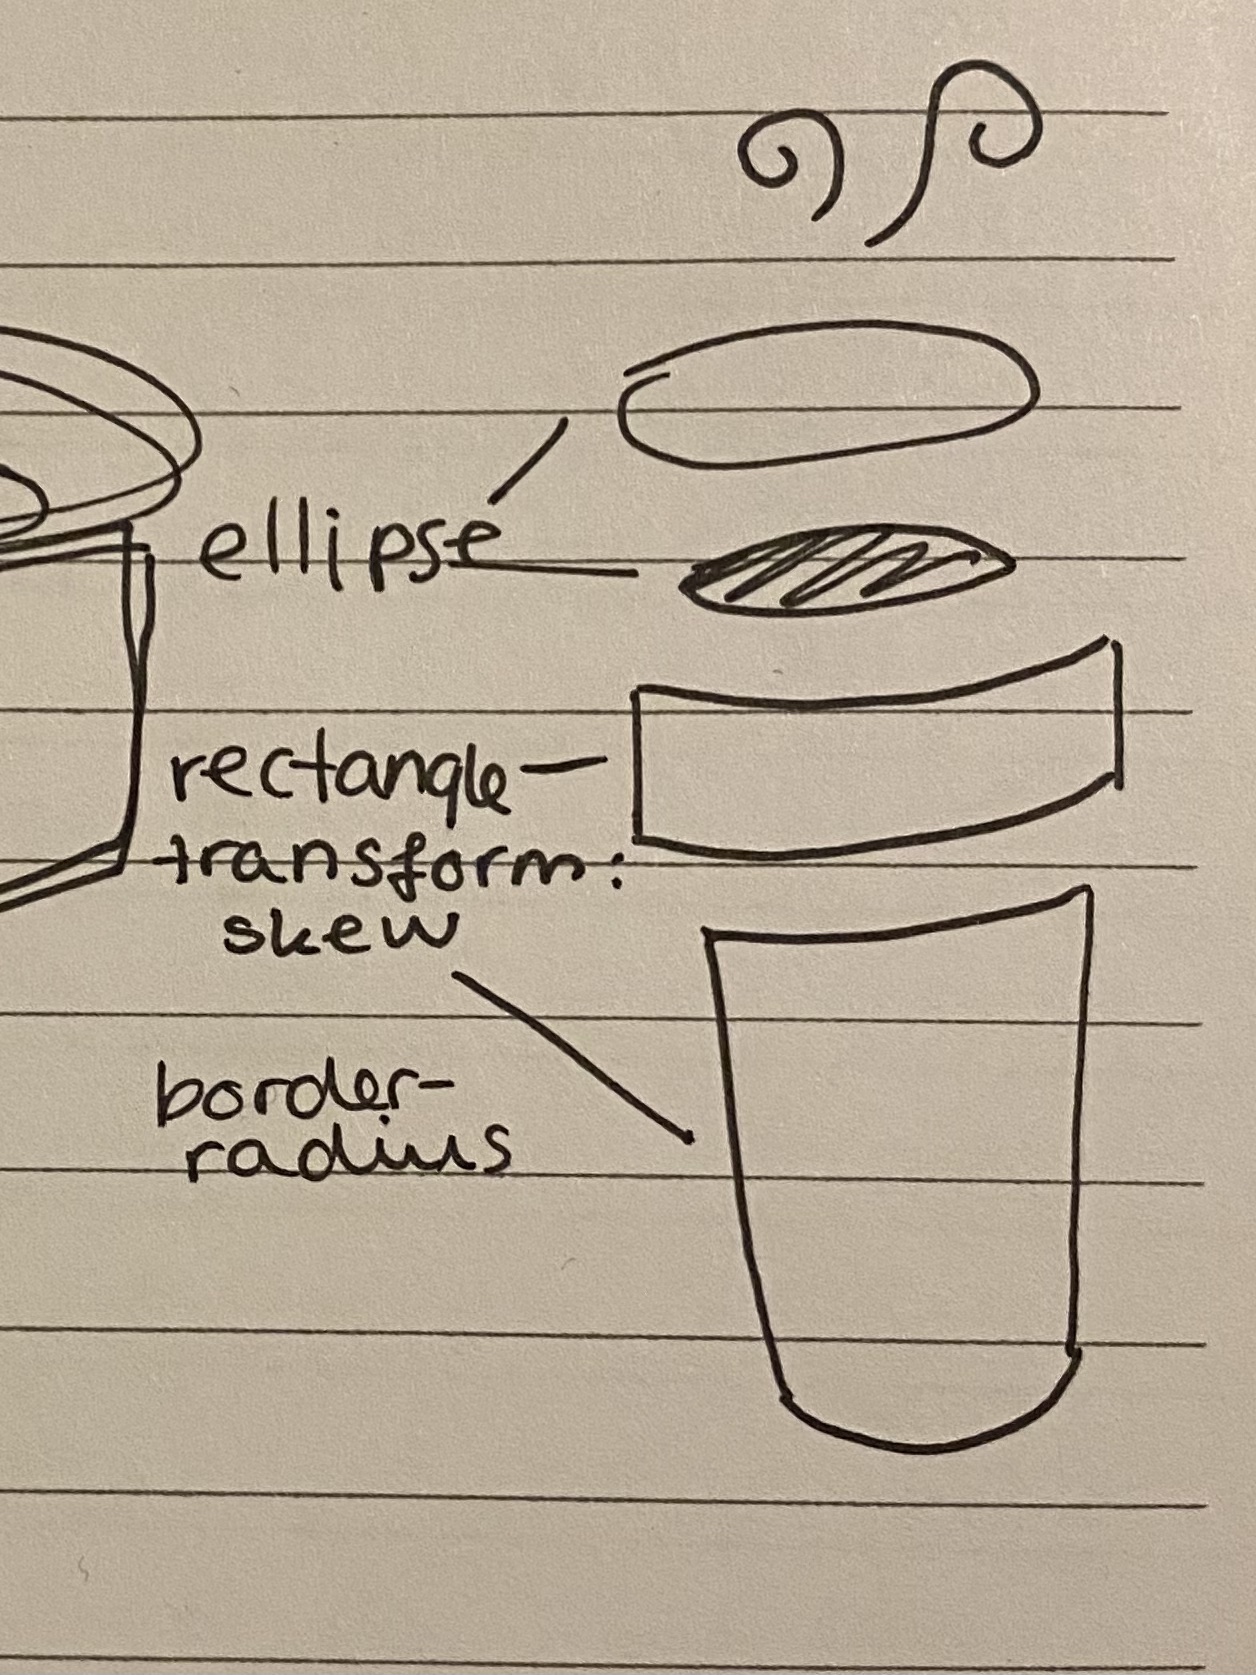 ellipse
rectangle
transform:
skew
border-
radius